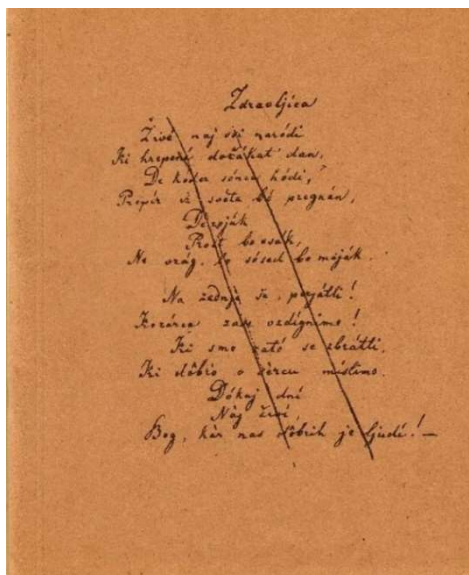 Zdravljica
Živé naj vsi naródi
Ki hrepené dočákat dan,
De koder sónce hódi,
Prepir iz svéta bó pregnán,
De roják
Prost bo vsák,
Ne vrág, le sósed bo meják.
Na zadnje še, prijátli!
Kozárce zase vzdignimo!
Ki smo zató se zbrátli,
Ki dôbro v sércu mislimo.
Dókaj dni
Nàj živí
Bog, kàr nas dobrih je ljudí! —